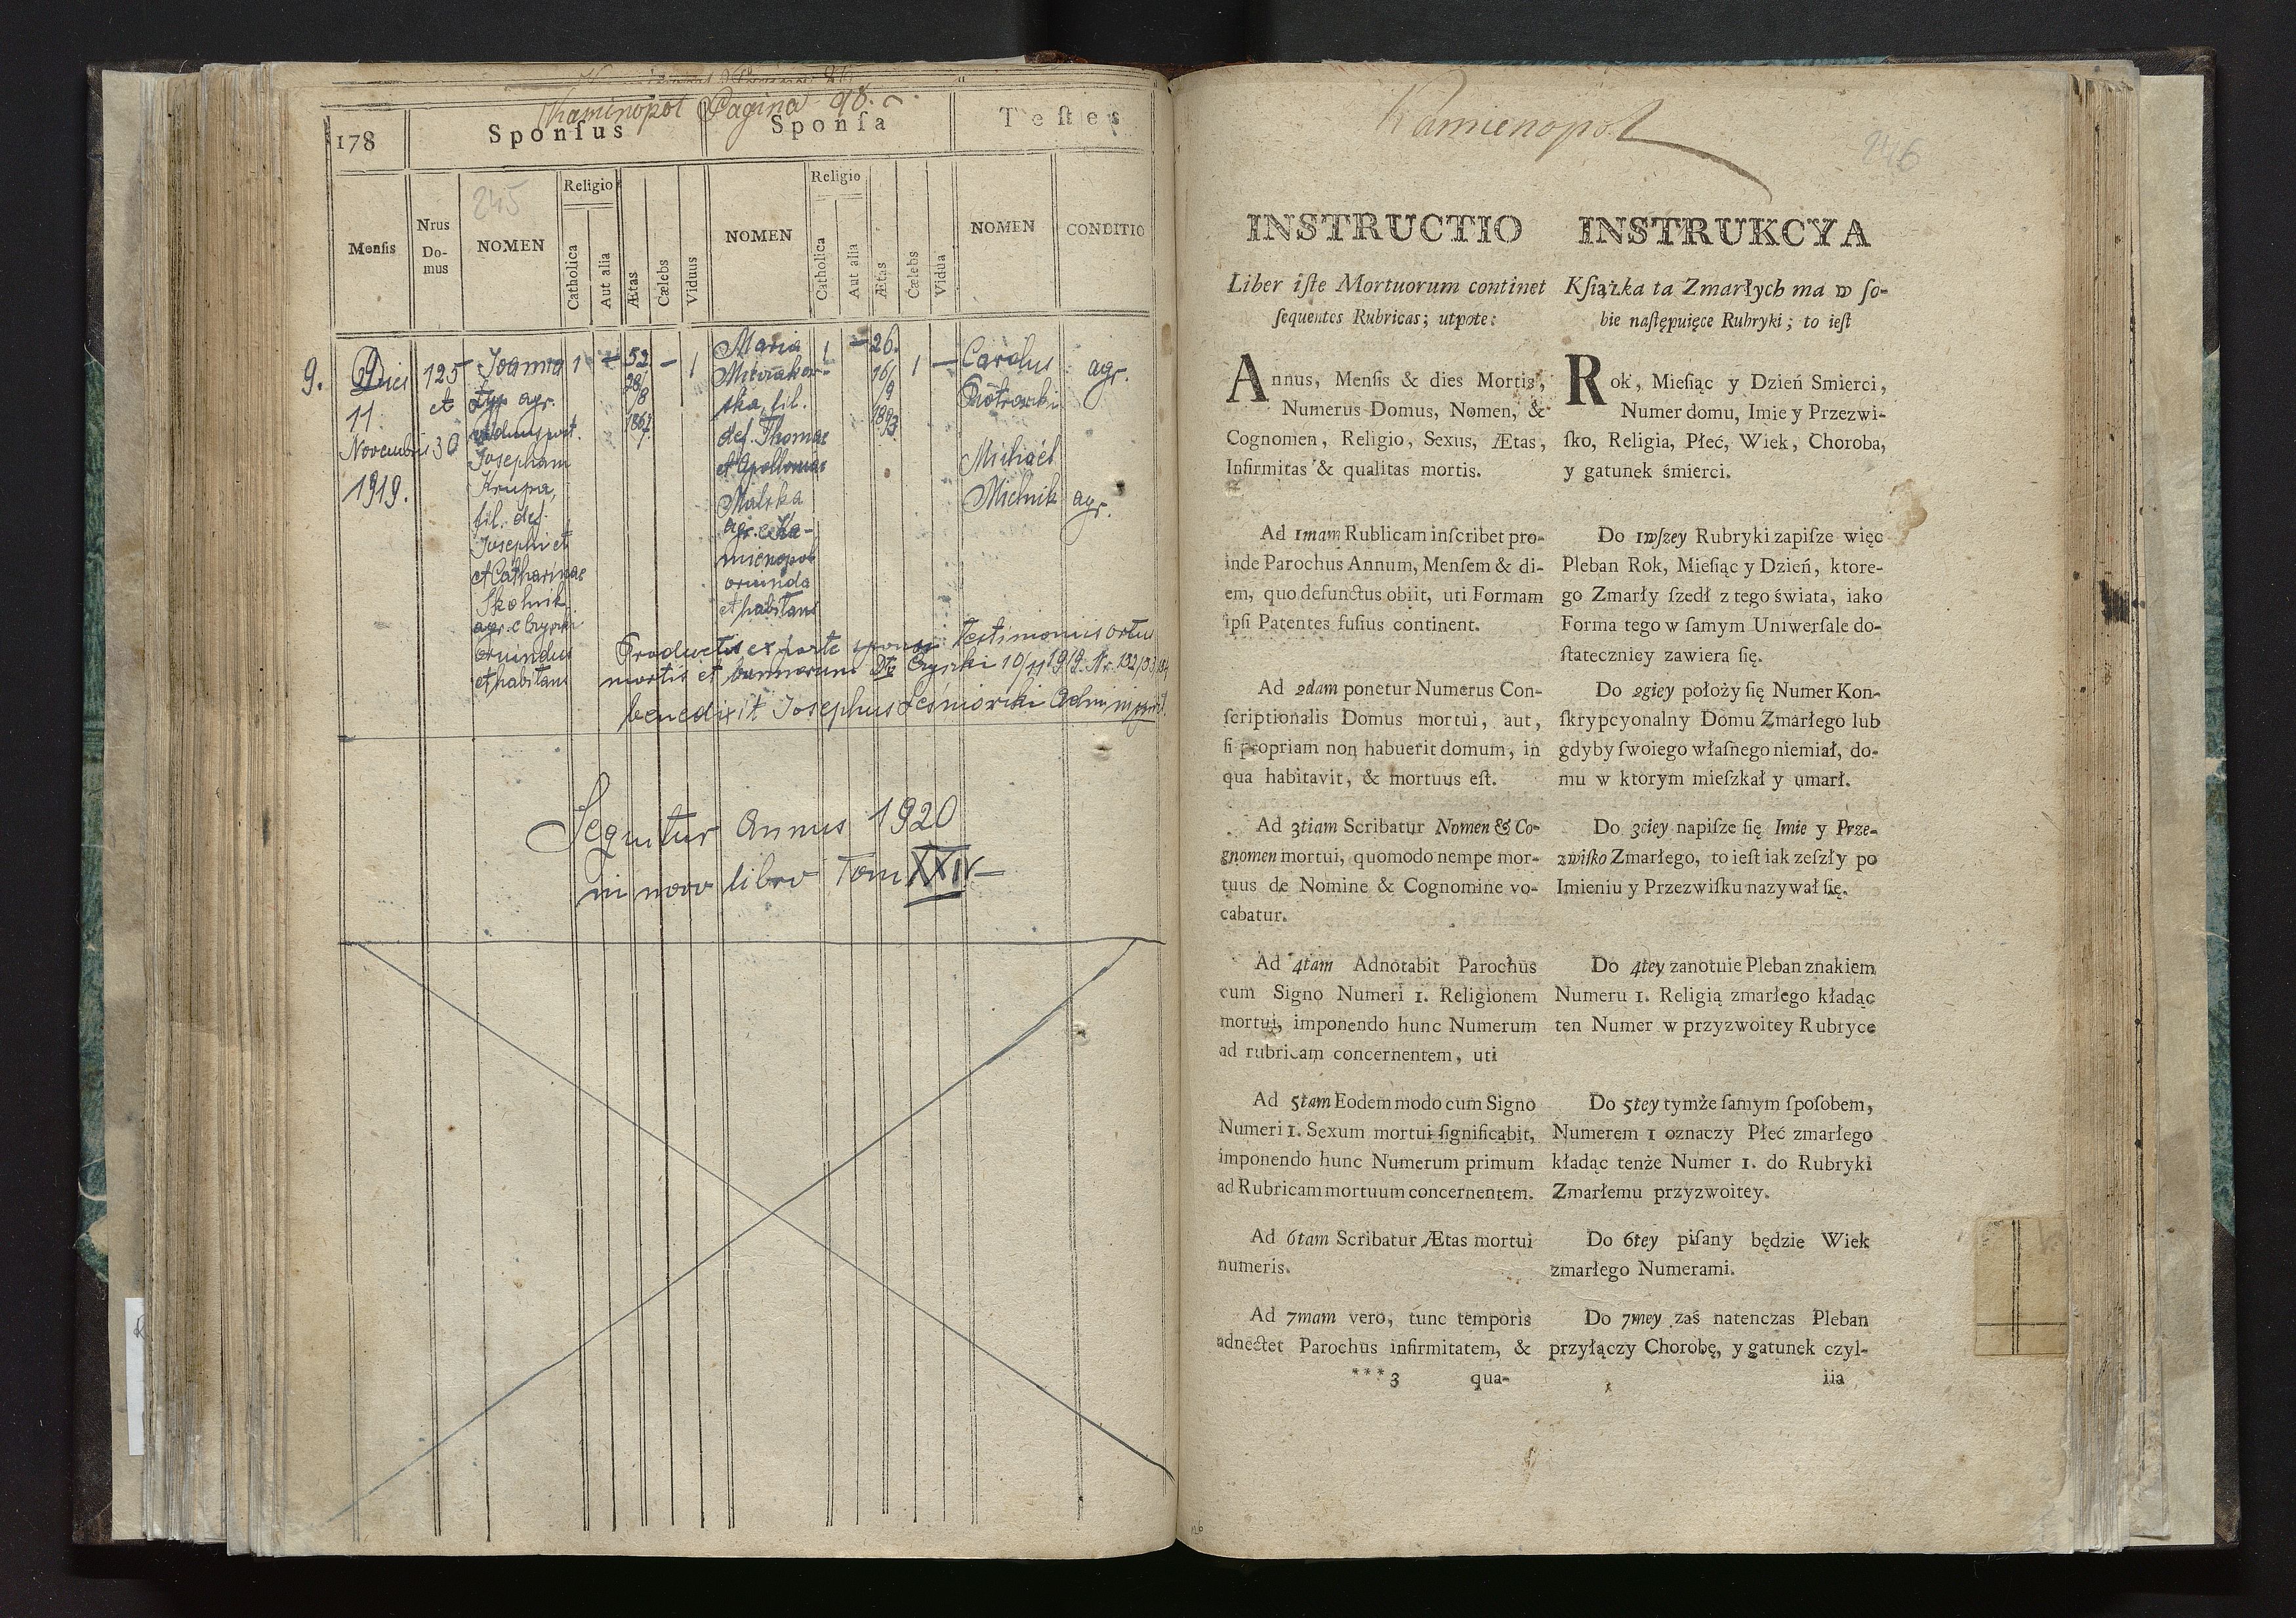 Kamienopol Pagina 98.
178
Sponſus
Sponſa
Teſtes
245
Menſis
Nrus Do-mus
NOMEN
Religio
Catholica
Aut alia
Ætas
Cælebs
Viduus
NOMEN
Religio
Catholica
Aut alia
Ætas
Cælebs
Vidua
NOMEN
CONDITIO
9.
Dies
11
Novembris
1919.
125
et
30
Joannes
agr.
viduus post.
Josepham
Krupa,
fil. def.
Josephi et
et Catharinae
Skolnik
agr. e
oriundus
et habitans
1
52
28/8
1867.
–
1
Maria
ska, fil.
def. Thomae
et Apolloniae
Malska
agr. e Ka-
mienopol
oriunda
et habitans
1
–
26.
16/9
1893.
1
–
Carolus
Piotrowski
agr.
Michaël
Mielnik
agr.
Productis ex parte sponsi Testimoniis ortus
mortis et bannorum Dto 10/11 1919. Nr. 132/33/
benedixit Josephus Leśniowski
Sequitur Annus 1920
in novo libro Tom XXIV –
Kamienopol
246
INSTRUCTIO
Liber iſte Mortuorum continet
ſequentes Rubricas; utpote:
Annus, Menſis & dies Mortis,
Numerus Domus, Nomen, &
Cognomen, Religio, Sexus, Ætas,
Infirmitas & qualitas mortis.
Ad 1mam Rublicam inſcribet pro-
inde Parochus Annum, Menſem & di-
em, quo defunctus obiit, uti Formam
ipſi Patentes fuſius continent.
Ad 2dam ponetur Numerus Con-
ſcriptionalis Domus mortui, aut,
ſi propriam non habuerit domum, in
qua habitavit, & mortuus eſt.
Ad 3tiam Scribatur Nomen & Co-
gnomen mortui, quomodo nempe mor-
tuus de Nomine & Cognomine vo-
cabatur.
Ad 4tam Adnotabit Parochus
cum Signo Numeri 1. Religionem
mortui, imponendo hunc Numerum
ad rubricam concernentem, uti
Ad 5tam Eodem modo cum Signo
Numeri 1. Sexum mortui ſignificabit,
imponendo hunc Numerum primum
ad Rubricam mortuum concernentem.
Ad 6tam Scribatur Ætas mortui
numeris.
Ad 7mam vero, tunc temporis
adnectet Parochus infirmitatem, &
***3 qua-
INSTRUKCYA
Kſiążka ta Zmarłych ma w ſo-
bie naſtępuięce Rubryki; to ieſt
Rok, Mieſiąc y Dzień Smierci,
Numer domu, Imie y Przezwi-
ſko, Religia, Płeć, Wiek, Choroba,
y gatunek śmierci.
Do 1wſzey Rubryki zapiſze więc
Pleban Rok, Mieſiąc y Dzień, ktore-
go Zmarły ſzedł z tego świata, iako
Forma tego w ſamym Uniwerſale do-
ſtateczniey zawiera ſię.
Do 2giey położy ſię Numer Kon-
ſkrypcyonalny Domu Zmarłego lub
gdyby ſwoiego właſnego niemiał, do-
mu w ktorym mieſzkał y umarł.
Do 3ciey napiſze ſię Imie y Prze-
zwiſko Zmarłego, to ieſt iak zeſzły po
Imieniu y Przezwiſku nazywał ſię.
Do 4tey zanotuie Pleban znakiem
Numeru 1. Religią zmarłego kładąc
ten Numer w przyzwoitey Rubryce
Do 5tey tymże ſamym ſpoſobem,
Numerem 1 oznaczy Płeć zmarłego
kładąc tenże Numer 1. do Rubryki
Zmarłemu przyzwoitey.
Do 6tey piſany będzie Wiek
zmarłego Numerami.
Do 7mey zaś natenczas Pleban
przyłączy Chorobę, y gatunek czyl-
iia
126